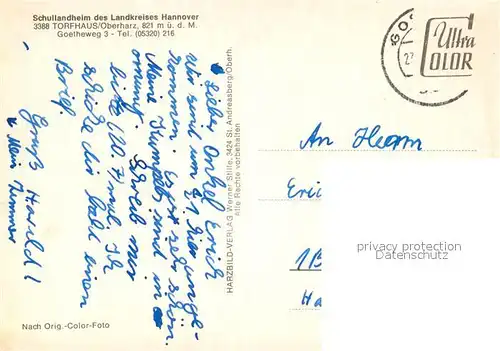 Schullandheim des Landkreises Hannover
3388 TORFHAUS/Oberharz, 821 m ü. d. M.
Goetheweg 3 - Tel. (05320) 216
Lieber Onkel Erich
Wir sind um 21 hier ange-
kommen. Es ist sehr schön.
Meine Kumpels sind in
ornung. Schreib mir
bitte mal. Ich
schicke dir bald einen
Brief.
Gruß Harald!
Mein Zimmer
HARZBILD-VERLAG Werner Stille, 3424 St. Andreasberg/Oberh.
Alle Rechte vorbehalten
Nach Orig.-Color-Foto
GO
Ultra
COLOR
An Herrn
Eric
1 B
Ha
privacy protection
Datenschutz